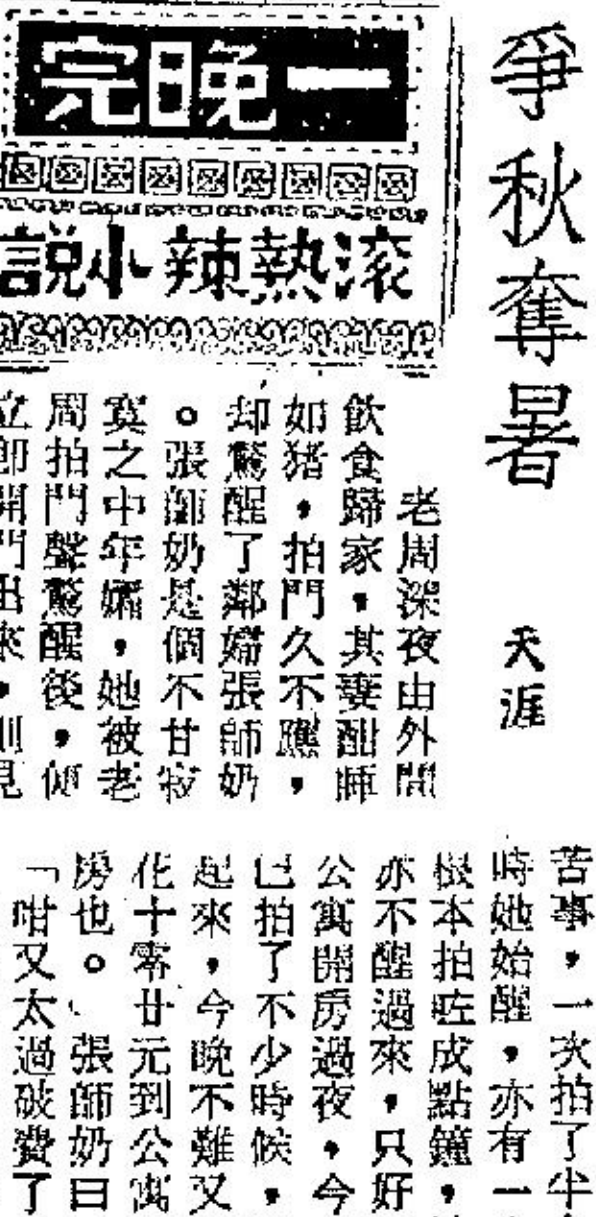 爭秋奪暑
天涯
一晚完
滾熱辣小說
老周深夜由外間
飲食歸家，其妻酣睡
如猪，拍門久不應，
却驚醒了鄰婦張師奶
。張師奶是個不甘寂
寞之中年婦，她被老
周拍門聲驚醒後，
立卽開門出來，則見
苦事，一次拍了半
時她始醒，亦有一
根本拍咗成點鐘，
亦不醒過來，只好
公寓開房過夜，今
已拍了不少時候，
起來，今晚不難又
花十零廿元到公寓
房也。張師奶曰
「咁又太過破費了